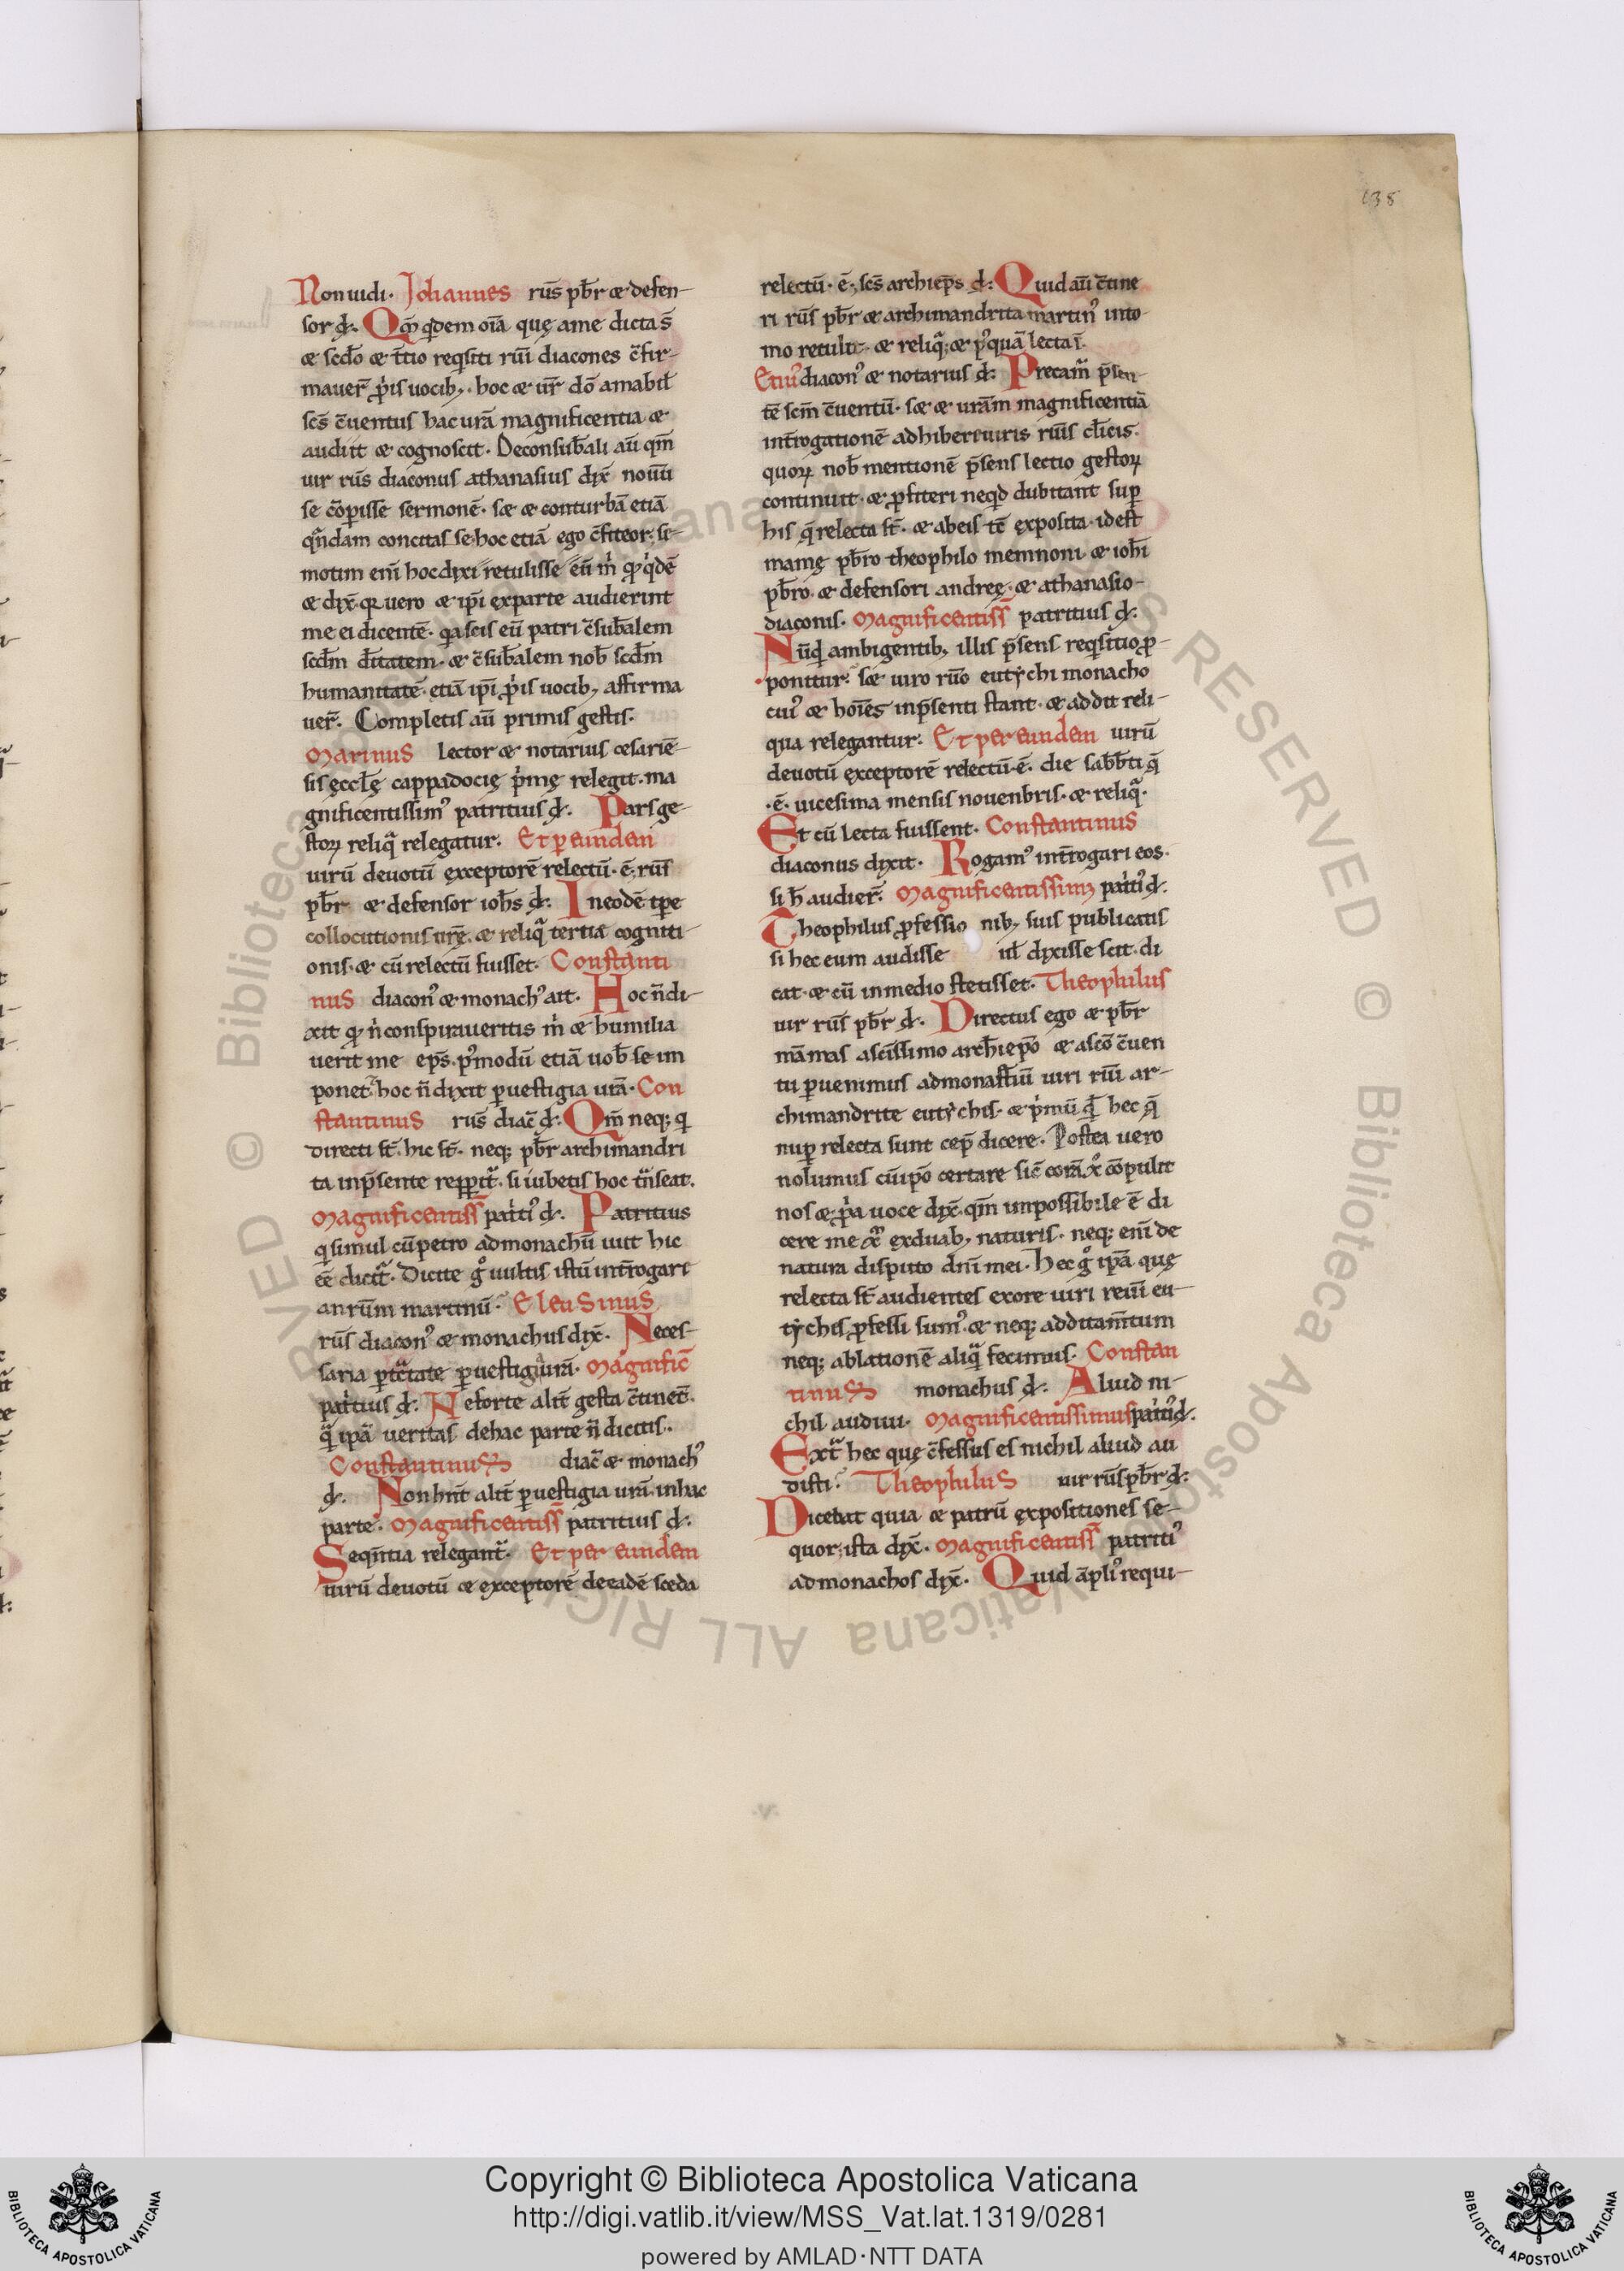 138
Non uidi. Johannes rūs pb̄r & defen-
sor d̵. Qm̄ q̇dem oīa quę ame dicta s̄
& scd̄o & t̄tio reqsiti rūi diacones c̄fir-
mauer̄ p̱riis uocib; hoc & ur̄ dō amabil̄
scs̄ c̄uentus hac urā magnificentia &
audiit & cognoscit. Deconsub̄ali aū qm̄
uir rūs diaconus athanasius dix̄ nouū
se c̄opisse sermonē. s& & conturbā etiā
q̄ndam concitas se. hoc etiā ego c̄fiteor. si-
motim enī hoc dixi retulisse eū ṁ q̇dē
& dix̄. q uero & ip̄i exparte audierint
me ei dicentē. qa scis eū patri c̄sub̄alem
scd̄m d̄itatem. & c̄sub̄alem nob̄ scd̄m
humanitatē. etiā ip̄i p̱riis uocib; affirma
uer̄. Completis aū primis gestis.
Marinus lector & notarius cesariē-
sis ęccl̄ę cappadocię ṗmę relegit. ma
gnificentissim⁹ patritius d̵. Pars ge-
stoꝝ reliq̄ relegatur. Et p eundem
uirū deuotū exceptorē relectū. ē. rūs
pb̄r & defensor ioh̄s d̵. In eodē tp̄e
collocutionis urę. & reliq̄ tertia cogniti-
onis. & cū relectū fuisset. Constanti
nus diacon⁹ & monach⁹ ait. Hoc n̄ di-
xit q n̄ conspiraueritis ṁ & humilia
uerit me ep̄s. p⁹modū etiā uob̄ se im
ponet. hoc n̄ dixit p uestigia urā. Con
stantinus rūs diac̄ d̵. Qm̄ neq; q
directi st̄. hic st̄. neq; pb̄r archimandri
ta inp̄sente repp̱it̄. si iubetis hoc t̄nseat.
Magnificentiss̄ pat̄ti⁹ d̵. Patritius
q simul cū petro ad monachū iuit hic
eē dicit̄. Dicite g̊ uultis istū int̄rogari
an rūm martinū. Eleusinus
rūs diacon⁹ & monachus dix̄. Neces-
saria p̱tc̄tate p uestigiū urā. Magnific̄
pat̄tius d̵. Ne forte alit̄ gesta c̄tinet̄.
q̄ ip̄a ueritas dehac parte n̄ dicitis.
Constantinus diac̄ & monach⁹
d̵. Non hn̄t alit̄ p uestigia urā. inhac
parte. Magnificentiss̄ patritius d̵.
Seqn̄tia relegant̄. Et per eundem
uirū deuotū & exceptorē deeadē sceda
relectū. ē. scs̄ archiep̄s d̵. Quid aū c̄tine
ri rūs pb̄r & archimandrita martin⁹ into-
mo retulit. & reliq̄. & p⁹quā lecta ī.
Etiu⁹ diacon⁹ & notarius d̵. Precam̄ p̄sen-
tē scm̄ c̄uentū. s& & urām magnificentiā
int̄rogationē adhiberi uiris rūis cl̄icis.
quoꝝ nob̄ mentionē p̄sens lectio gestoꝝ
continuit. & p̱fiteri neqd̄ dubitant sup
his q̄ relecta st̄. & abeis tē exposita. id est
mamę pb̄ro theophilo memnoni & ioh̄i
pb̄ro & defensori andreę. & athanasio-
diaconis. Magnificentiss̄ patritius d̵.
Nūqd ambigentib; illis p̄sens reqsitio p̱-
ponitur. s& uiro rūo eutychi monacho
cui⁹ & hoīes inp̄senti stant. & addit reli-
qua relegantur. Et per eundem uirū
deuotū exceptorē relectū. ē. die sabb̄ti q̄
. ē. uicesima mensis nouenbris. & reliq̄.
Et cū lecta fuissent. Constantinus
diaconus dixit. Rogam⁹ int̄rogari eos.
si h̄ audier̄. Magnificentissim⁹ pat̄ti⁹ d̵.
Theophilus p̱fessio nib; suis publicatis
si hec eum audisse ul̄ dixisse scit. di
cat. & cū in medio stetisset. Theophilus
uir rūs pb̄r d̵. Directus ego & pb̄r
māmas ascīssimo archiep̄o & ascō c̄uen
tu puenimus ad monast̄iū uiri riū ar-
chimandrite eutychis. & ṗmū qd̄ hec q̄
nup relecta sunt cep̄ dicere. Postea uero
nolumus cū ip̄o certare sic̄ corā x̊ c̄opulit
nos & p̱ria uoce dix̄. qm̄ impossibile ē di
cere me x̄r̄ ex duab; naturis. neq; enī de
natura disputo dn̄i mei. Hec g̊ ip̄a quę
relecta st̄ audientes exore uiri reūi eu-
tychis p̱fessi sum⁹. & neq; additam̄tum
neq; ablationē aliq̄ fecimus. Constan
tinus monachus d̵. Aliud ni-
chil audiui. Magnificentissimus pat̄ti⁹ d̵.
Ext̄ hec quę c̄fessus es nichil aliud au
disti. Theophilus uir rūs pb̄r d̵:
Dicebat quia & patrū expositiones se-
quor. ista dix̄. Magnificentiss̄ patriti⁹
ad monachos dix̄. Quid āpli⁹ requi-
.v.
© Biblioteca Apostolica Vaticana ALL RIGHTS RESERVED © Biblioteca Apostolica Vaticana ALL RIGHTS RESERVED
Copyright © Biblioteca Apostolica Vaticana
http://digi.vatlib.it/view/MSS_Vat.lat.1319/0281
powered by AMLAD·NTT DATA
BIBLIOTECA APOSTOLICA VATICANA
BIBLIOTECA APOSTOLICA VATICANA